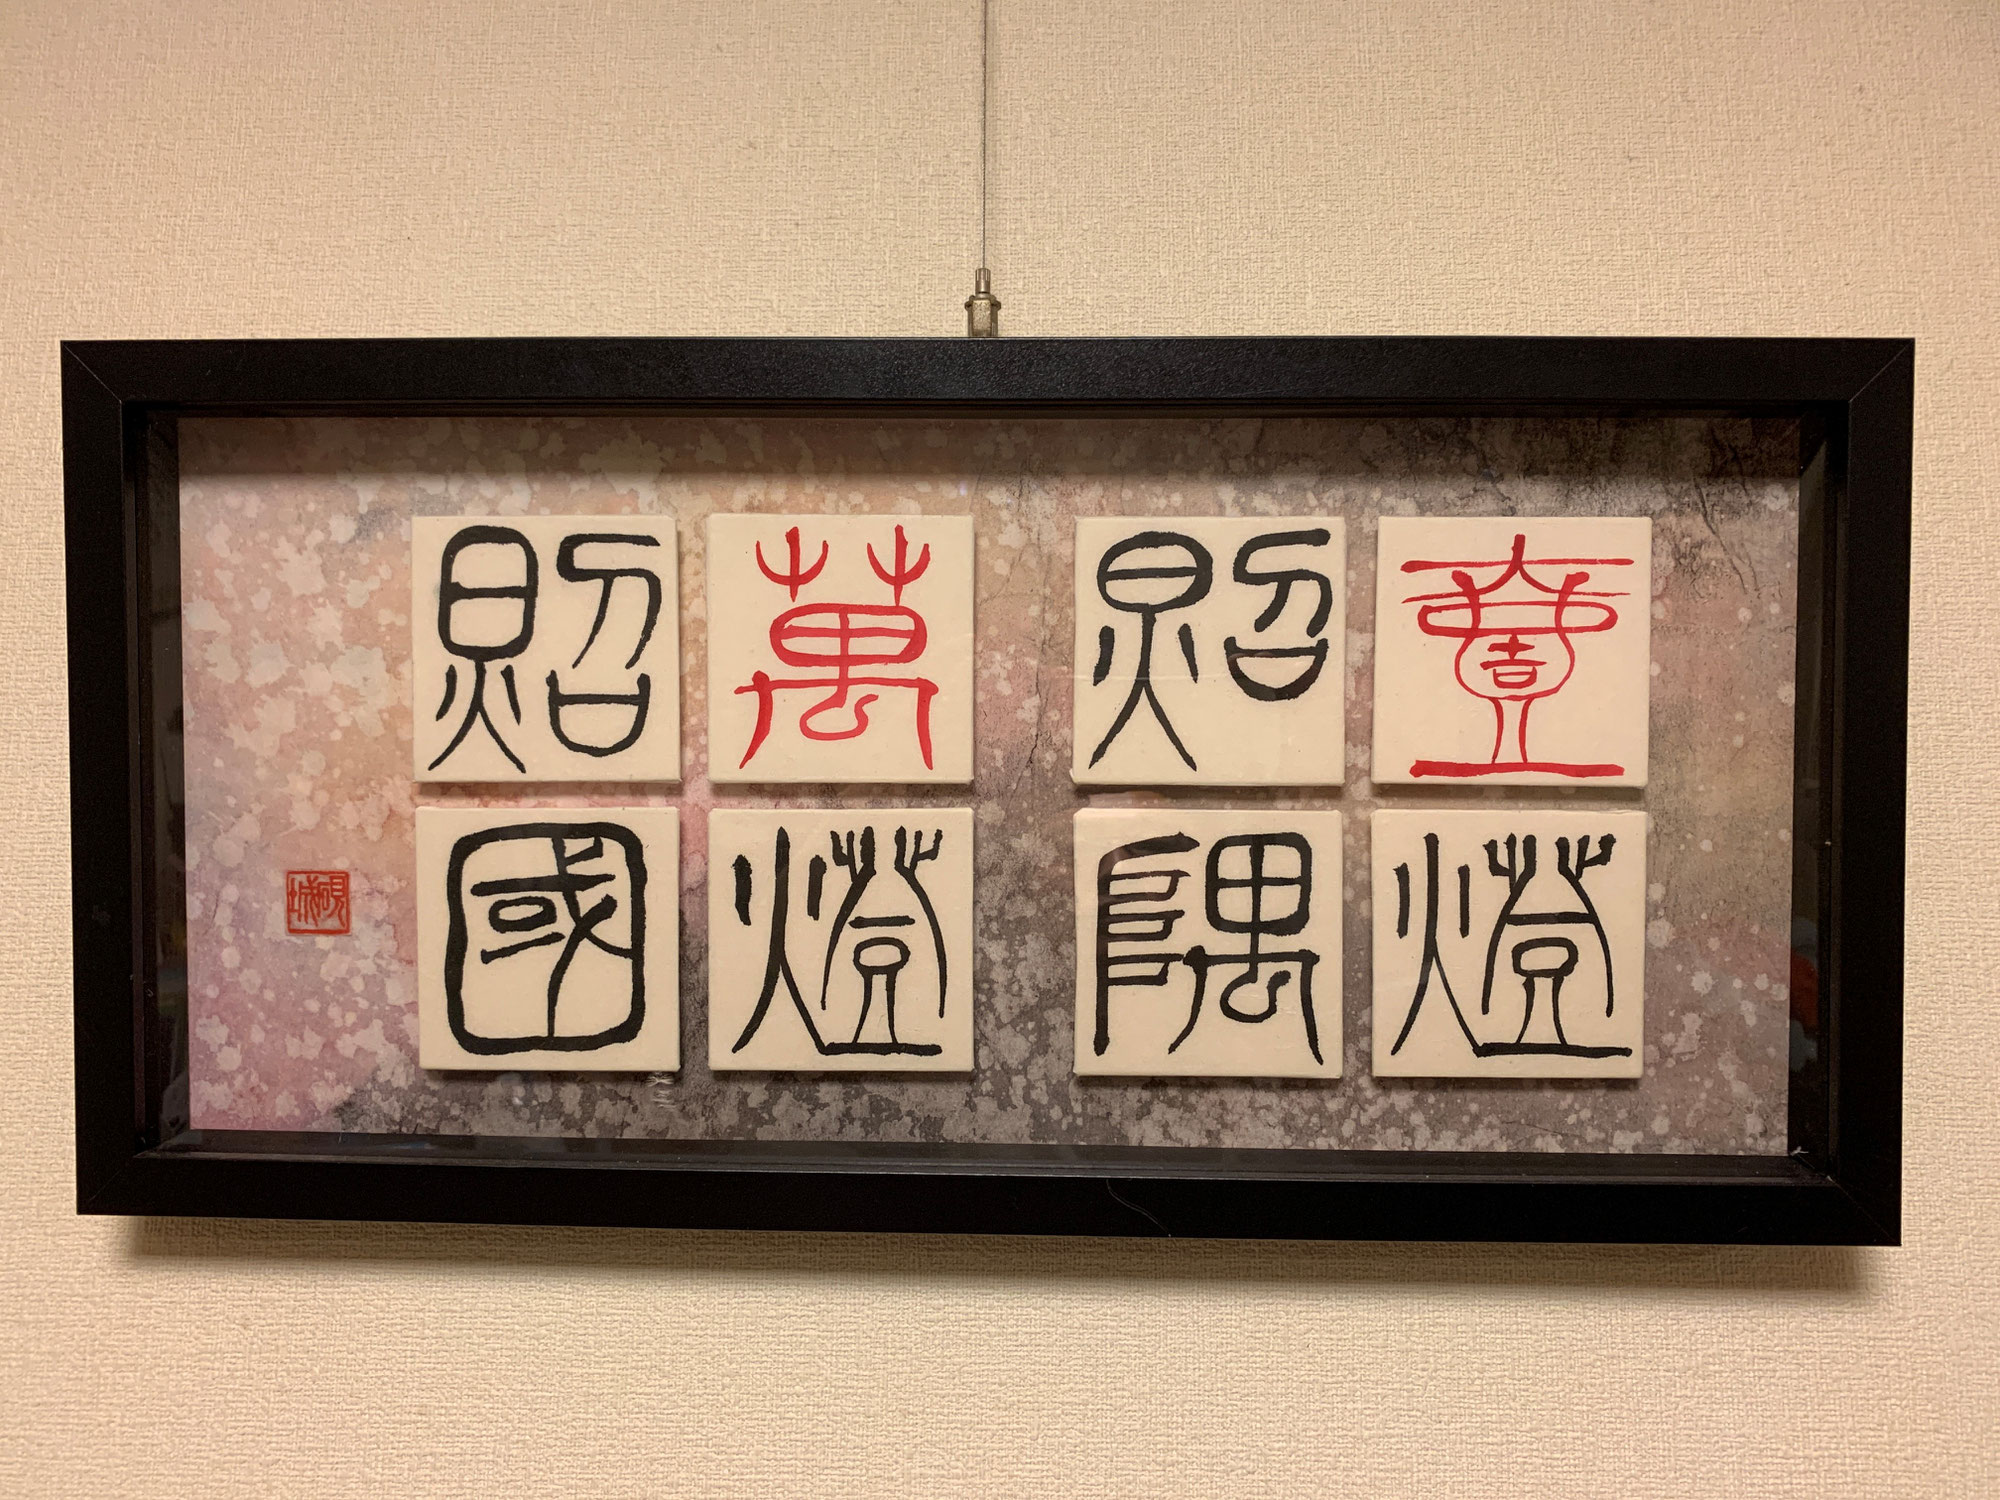 壹燈
照隅
萬燈
照國
硯城